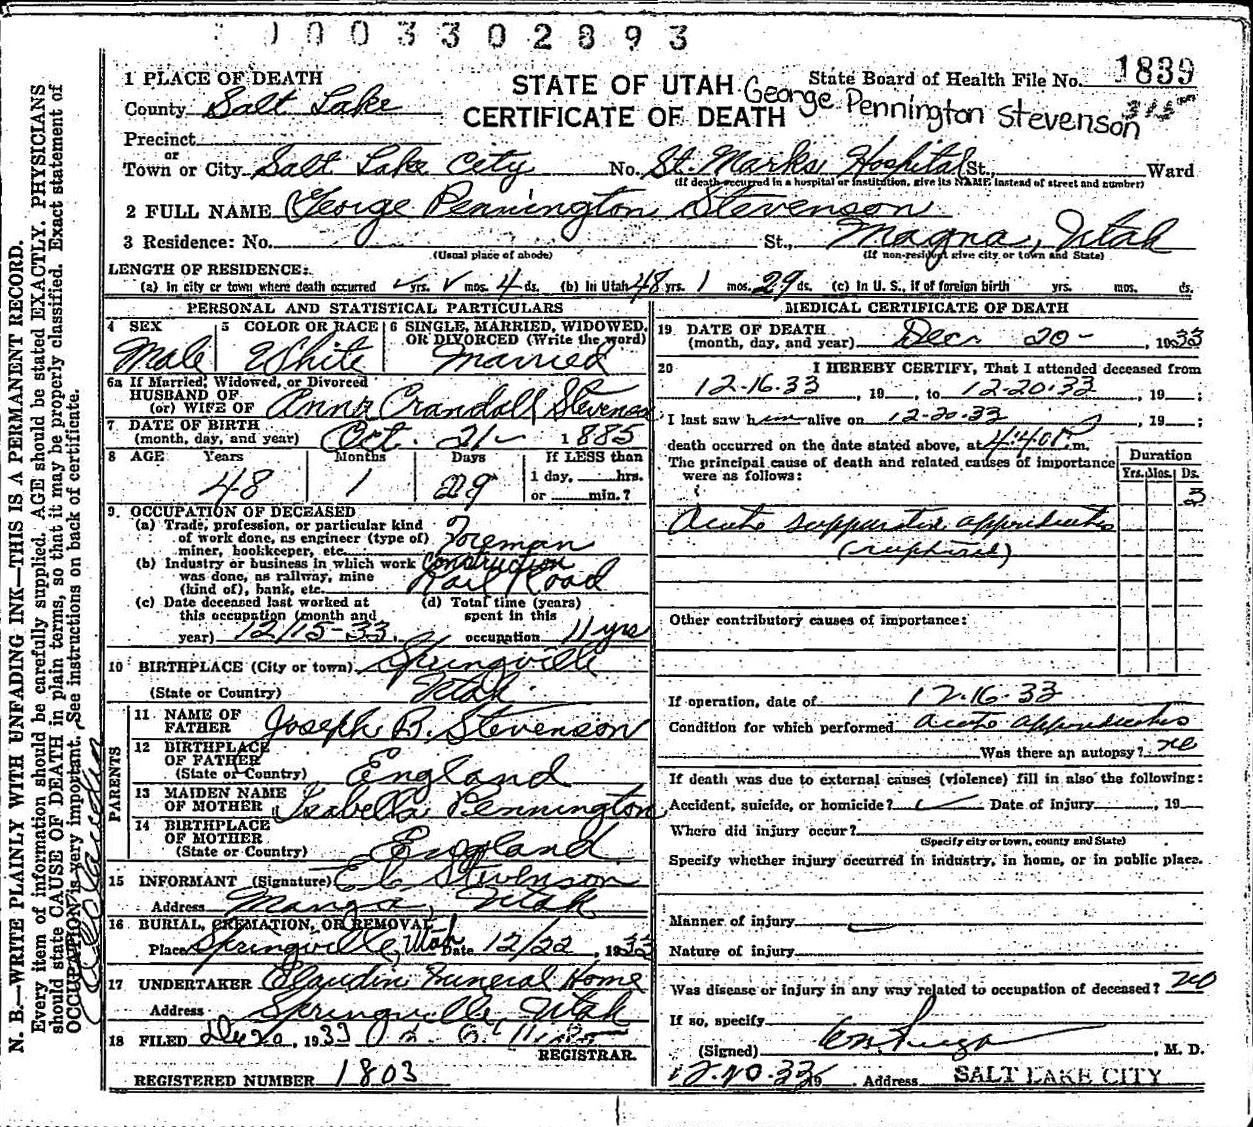 1003302893
1 PLACE OF DEATH
STATE OF UTAH
CERTIFICATE OF DEATH
State Board of Health File No. 1839
George Pennington Stevenson
County Salt Lake
Precinct
or
Town or City Salt Lake City No. St. Marks Hospital St., Ward
(If death occurred in a hospital or institution, give its NAME instead of street and number)
2 FULL NAME George Pennington Stevenson
3 Residence: No. St., Magna, Utah
(Usual place of abode) (If non-resident give city or town and State)
LENGTH OF RESIDENCE:
(a) In city or town where death occurred yrs. mos. 4 ds. (b) In Utah 48 yrs. 1 mos. 29 ds. (c) In U. S., if of foreign birth yrs. mos. ds.
PERSONAL AND STATISTICAL PARTICULARS
4 SEX
Male
5 COLOR OR RACE
White
6 SINGLE, MARRIED, WIDOWED, OR DIVORCED (Write the word)
Married
6a If Married, Widowed, or Divorced
HUSBAND OF
(or) WIFE OF Anna Crandall Stevenson
7 DATE OF BIRTH
(month, day, and year) Oct. 21 1885
8 AGE Years Months Days If LESS than
48 1 29 1 day, hrs.
or min.?
9. OCCUPATION OF DECEASED
(a) Trade, profession, or particular kind
of work done, as engineer (type of)
miner, bookkeeper, etc. Foreman
(b) Industry or business in which work
was done, as railway, mine
(kind of), bank, etc. Construction
Rail Road
(c) Date deceased last worked at
this occupation (month and
year) 12/15-33
(d) Total time (years)
spent in this
occupation 11 yrs
10 BIRTHPLACE (City or town) Springville
(State or Country) Utah
PARENTS
11 NAME OF
FATHER Joseph B. Stevenson
12 BIRTHPLACE
OF FATHER
(State or Country) England
13 MAIDEN NAME
OF MOTHER Isabella Pennington
14 BIRTHPLACE
OF MOTHER
(State or Country) England
15 INFORMANT (Signature) Stevenson
Address Utah
16 BURIAL, CREMATION, OR REMOVAL
Place Springville, Utah Date 12/22, 1933
17 UNDERTAKER Claudin Funeral Home
Address Springville, Utah
18 FILED 1933
REGISTRAR.
REGISTERED NUMBER 1803
MEDICAL CERTIFICATE OF DEATH
19 DATE OF DEATH
(month, day, and year) Dec. 20 - , 1933
20 I HEREBY CERTIFY, That I attended deceased from
12-16-33, 19 , to 12-20-33, 19 ;
I last saw him alive on 12-20-33, 19 ;
death occurred on the date stated above, at 4:40 P m.
The principal cause of death and related causes of importance
were as follows:
Duration
Yrs. Mos. Ds.
3
Acute suppurative appendicitis
(ruptured)
Other contributory causes of importance:
If operation, date of 12-16-33
Condition for which performed acute appendicitis
Was there an autopsy? no
If death was due to external causes (violence) fill in also the following:
Accident, suicide, or homicide? Date of injury , 19
Where did injury occur?
(Specify city or town, county and State)
Specify whether injury occurred in industry, in home, or in public place.
Manner of injury
Nature of injury
Was disease or injury in any way related to occupation of deceased? no
If so, specify
(Signed) , M. D.
12-20-33 19 . Address SALT LAKE CITY
N. B.—WRITE PLAINLY WITH UNFADING INK—THIS IS A PERMANENT RECORD.
Every item of information should be carefully supplied. AGE should be stated EXACTLY. PHYSICIANS
should state CAUSE OF DEATH in plain terms, so that it may be properly classified. Exact statement of
OCCUPATION is very important. See instructions on back of certificate.